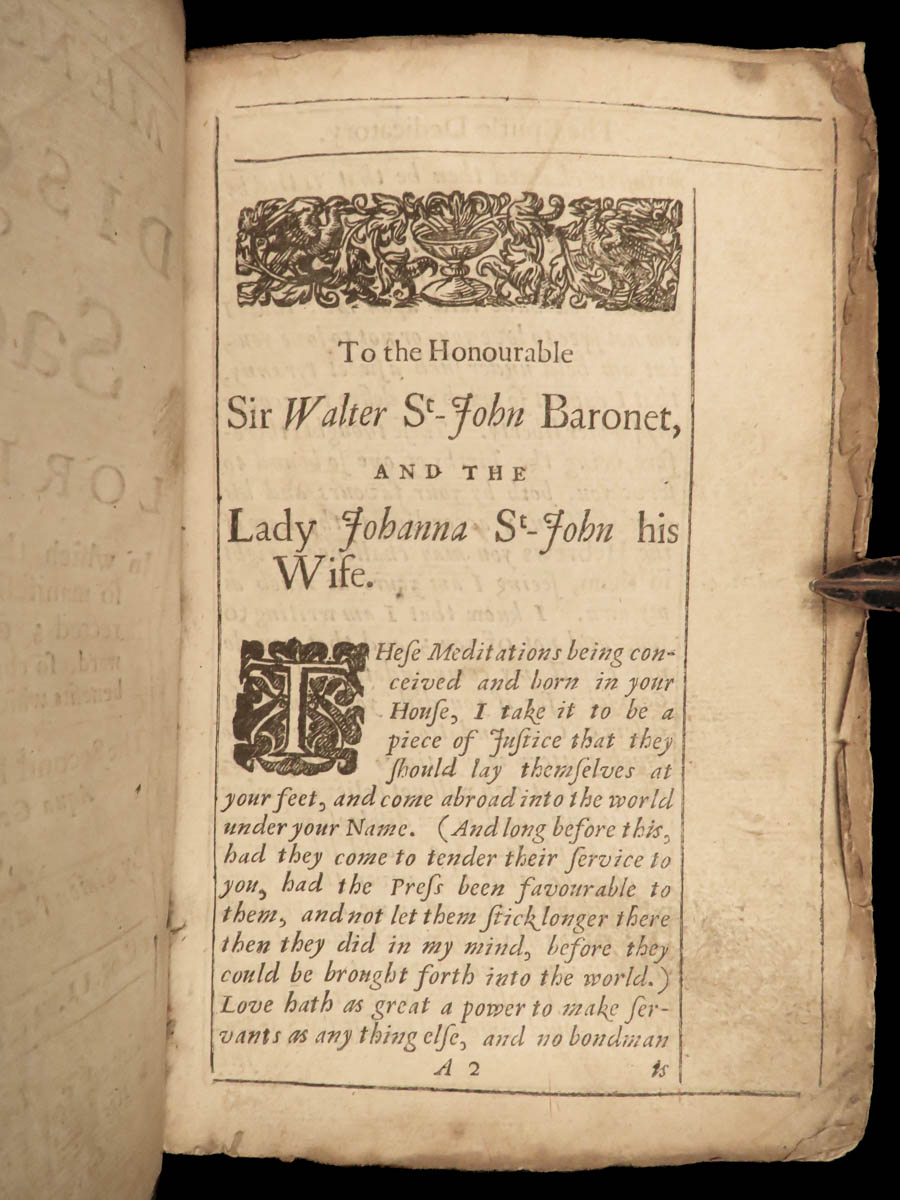 To the Honourable
Sir Walter Sᵗ-John Baronet,
AND THE
Lady Johanna Sᵗ-John his
Wife.
THeſe Meditations being con-
ceived and born in your
Houſe, I take it to be a
piece of Juſtice that they
ſhould lay themſelves at
your feet, and come abroad into the world
under your Name. (And long before this,
had they come to tender their ſervice to
you, had the Preſs been favourable to
them, and not let them ſtick longer there
then they did in my mind, before they
could be brought forth into the world.)
Love hath as great a power to make ſer-
vants as any thing elſe, and no bondman
A 2 is